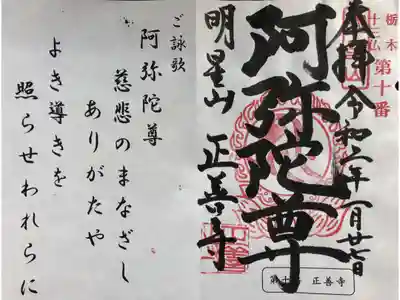 栃木
十三仏
第十番
奉拝
令和二年一月廿七日
阿弥陀尊
明星山
正善寺
第十番 正善寺
ご詠歌
阿弥陀尊
慈悲のまなざし
ありがたや
よき導きを
照らせわれらに